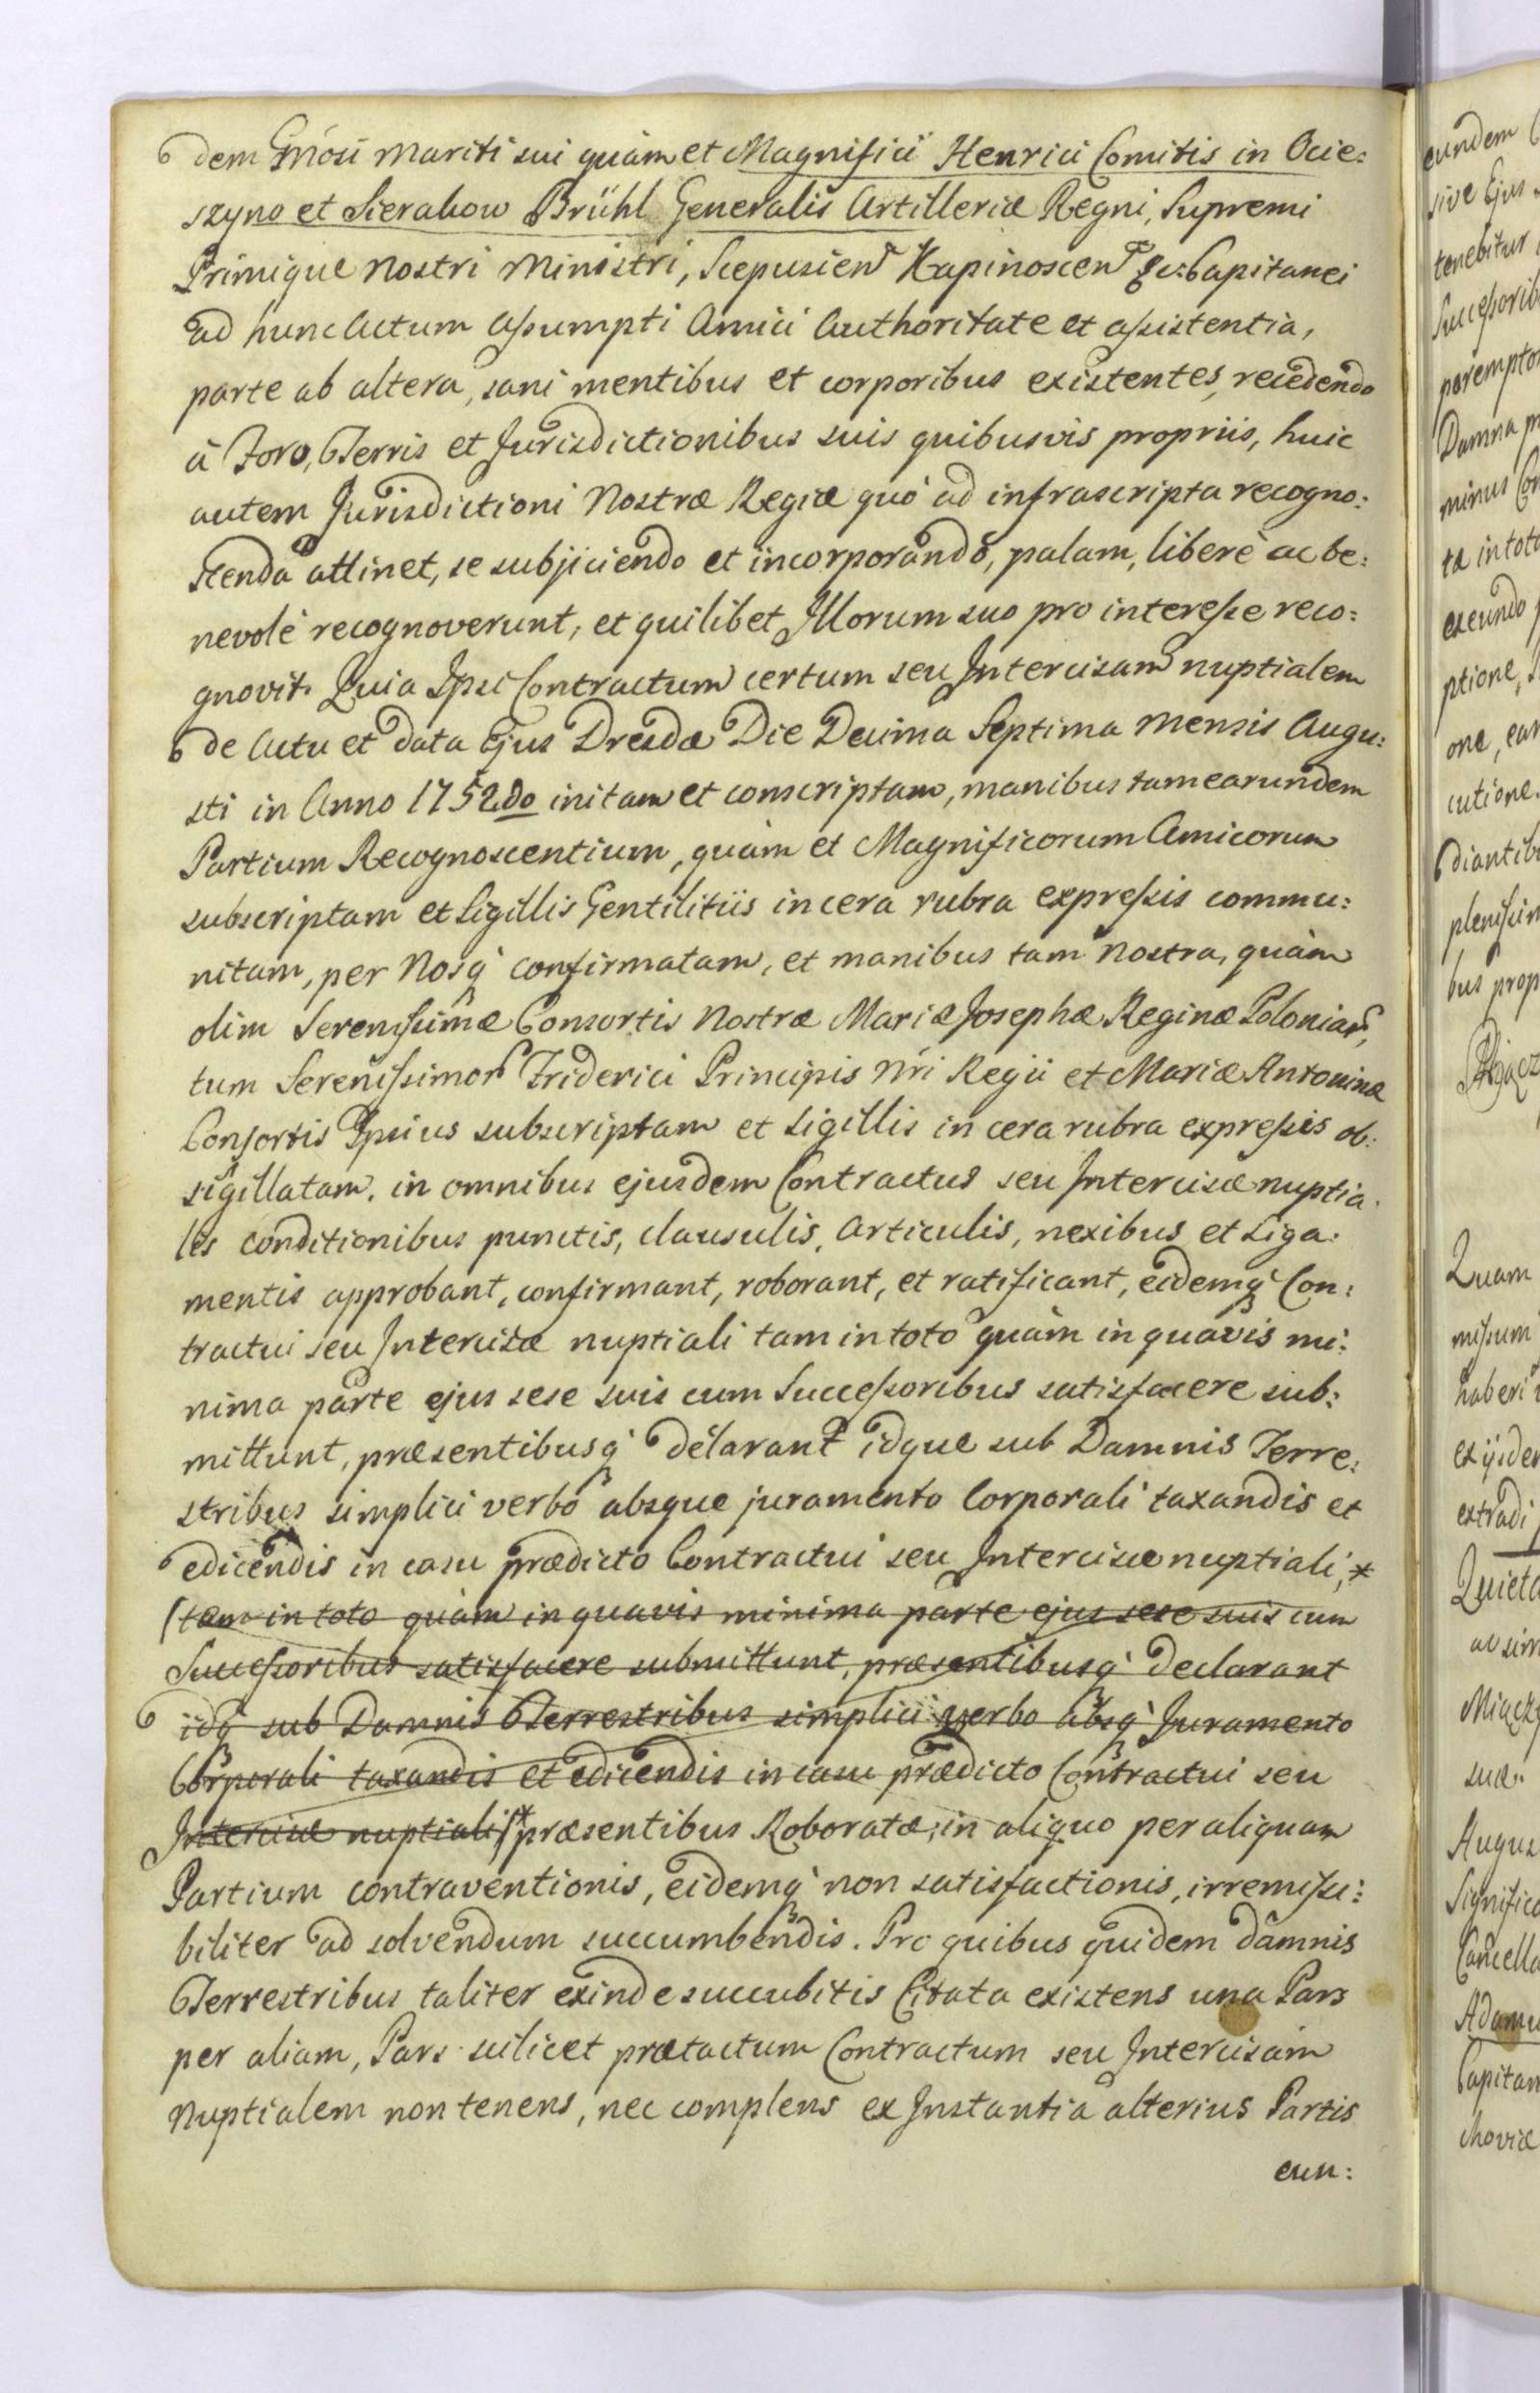 dem Gnósi Mariti sui quàm et Magnificï Henrici Comitis in Ocie:
szyno et Sierakow Brühl Generalis Artilleriæ Regni, Supremi
Primique Nostri Ministri, Scepusien Kapinoscen &c: Capitanei
ad hunc Actum assumpti Amici Authoritate et assistentia,
parte ab altera, sani mentibus et corporibus existentes, recedendo
à Foro, Terris et Jurisdictionibus suis quibusvis propriis, huic
autem Jurisdictioni Nostræ Regiæ quò ad infrascripta recogno:
scenda attinet, se subjiciendo et incorporando, palam, liberè ac be:
nevolè recognoverunt, et quilibet Illorum suo pro interesse reco:
gnovit. Quia Ipsi Contractum certum seu Intercisam nuptialem
de Actu et data Ejus Dresdæ Die Decima Septima Mensis Augu:
sti in Anno 1752do initam et conscriptam, manibus tam earundem
Partium Recognoscentium, quàm et Magnificorum Amicorum
subscriptam et Sigillis Gentilitiis in cera rubra expressis commu:
nitam, per Nosq́ confirmatam, et manibus tam Nostra, quàm
olim Serenissimæ Consortis Nostræ Mariæ Josephæ Reginæ Poloniar,
tum Serenissimor Friderici Principis Nri Regii et Mariæ Antoninæ
Consortis Ipsius subscriptam et Sigillis in cera rubra expressis ob:
sigillatam. in omnibus ejusdem Contractus seu Intercisæ nuptia:
les conditionibus punctis, clausulis, Articulis, nexibus et Liga:
mentis approbant, confirmant, roborant, et ratificant, eidemq́ Con:
tractui seu Intercisæ nuptiali tam in toto quàm in quavis mi:
nima parte ejus sese suis cum Successoribus satisfacere sub:
mittunt, præsentibusq́ délarant idque sub Damnis Terre:
stribus simplici verbo absque juramento Corporali taxandis et
edicendis in casu prædicto Contractui seu Intercisæ nuptiali, *
(tam in toto quàm in quavis minima parte ejus sese suis cum
Successoribus satisfacere submittunt, præsentibusq́ declarant
idq́ sub Damnis Terrestribus simplici verbo absq́ Juramento
Corporali taxandis et edicendis in casu prædicto Contractui seu
Intercisæ nuptiali)* præsentibus Roboratæ, in aliquo per aliquam
Partium contraventionis, eidemq́ non satisfactionis, irremissi:
biliter ad solvendum succumbendis. Pro quibus quidem damnis
Terrestribus taliter exinde succubitis Citata existens una Pars
per aliam, Pars scilicet prætactum Contractum seu Intercisam
Nuptialem non tenens, nec complens ex Instantia alterius Partis
eun: